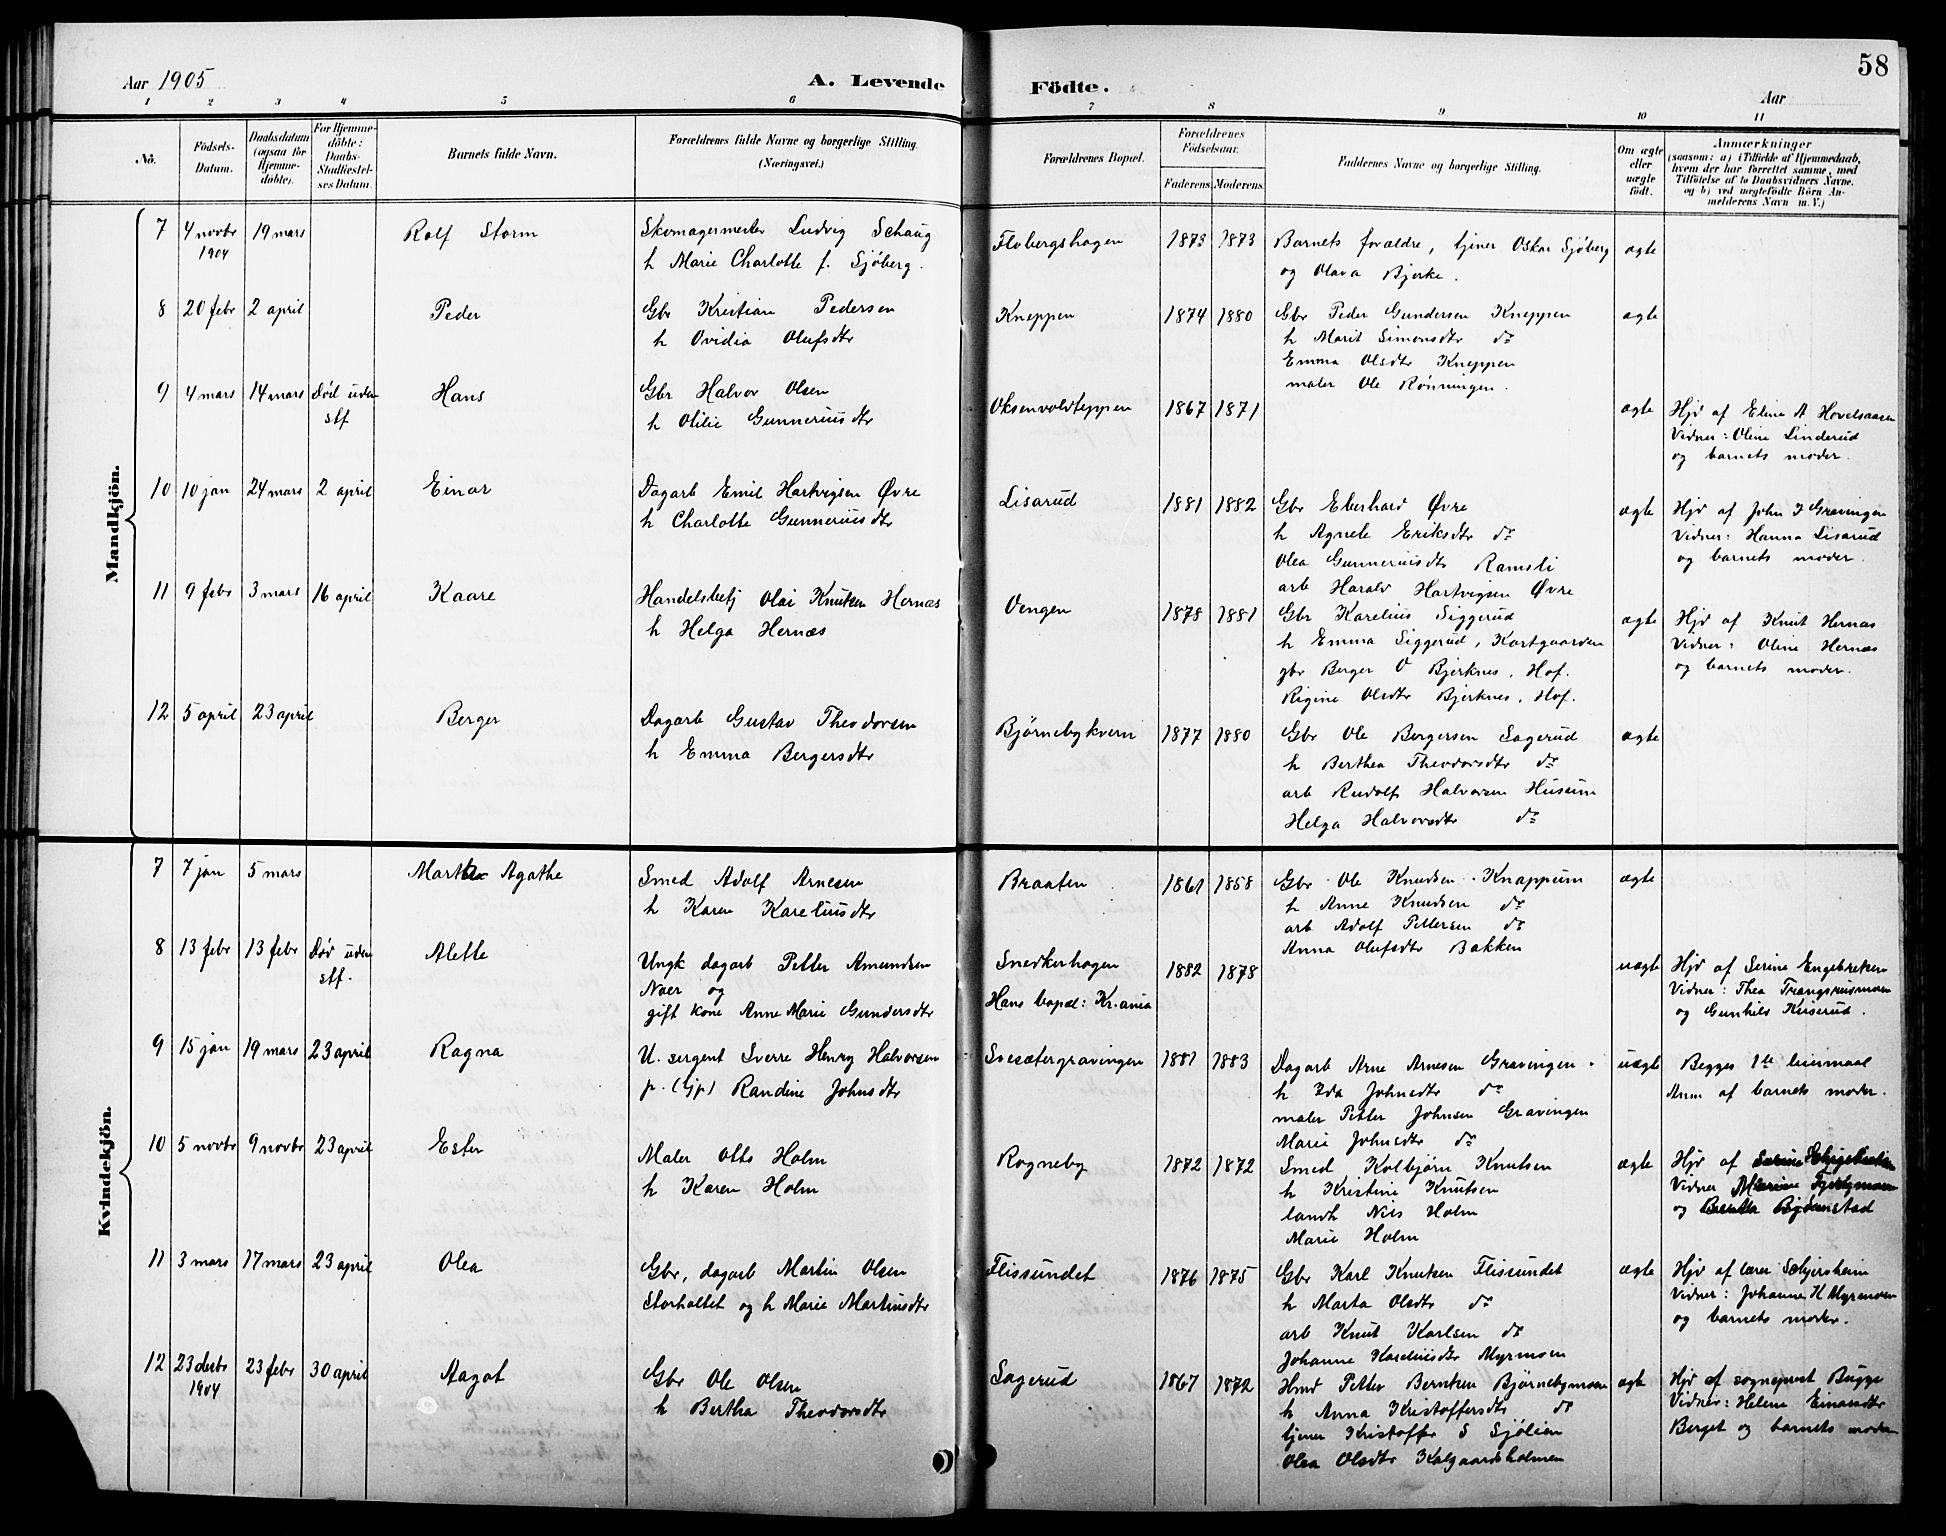 58
Aar 1905
A. Levende
Födte.
Aar
1 2 3 4 5 6 7 8 9 10 11
No.
Födsels-
Datum.
Daabsdatum
(ogsaa for
Hjemme-
döbte).
For Hjemme-
döbte:
Daabs-
Stadfæstel-
ses Datum.
Barnets fulde Navn.
Forældrenes fulde Navne og borgerlige Stilling.
(Næringsvei.)
Forældrenes Bopæl.
Forældrenes
Födselsaar.
Faderens. Moderens.
Faddernes Navne og borgerlige Stilling.
Om ægte
eller
uægte
födt.
Anmærkninger
(saasom: a) i Tilfælde af Hjemmedaab,
hvem der har forrettet samme, med
Tilföielse af to Daabsvidners Navne,
og b) ved uægtefödte Börn An-
melderens Navn m. V.)
Mandkjön.
7 4 novbr 19 mars Rolf Storm Skomagermester Ludvig Schaug Flobergshagen 1873 1873 Barnets forældre, tjener Oskar Sjöberg ægte
1904 h Marie Charlotte f. Sjöberg. og Olava Bjerke.
8 20 febr 2 april Peder Gbr Kristian Pedersen Kneppen 1874 1880 Gbr Peder Gundersen Kneppen ægte
h Ovidia Olufsdtr h Marit Simensdtr do
Emma Olsdtr Kneppen
maler Ole Rönningen.
9 4 mars 14 mars Död uden Hans Gbr Halvor Olsen Oksenvoldteppen 1867 1871 ægte Hjd af Eline A Hovelsaasen
stf h Otilie Gunneriusdtr Vidner: Oline Linderud
og barnets moder.
10 10 jan 24 mars 2 april Einar Dagarb Emil Hartvigsen Øvre Lisarud 1881 1882 Gbr Eberhard Øvre ægte Hjd af John J Gravingen
h Charlotte Gunneriusdtr h Agnete Eriksdtr do Vidner: Hanna Lisarud
Olea Gunneriusdtr Ramsli og barnets moder.
arb Harald Hartvigsen Øvre
11 9 febr 3 mars 16 april Kaare Handelsbetj Olai Knutsen Hernæs Vengen 1878 1881 Gbr Karelius Siggerud ægte Hjd af Knut Hernæs
h Helga Hernæs h Emma Siggerud, Kortgaarden Vidner: Oline Hernæs
gbr Berger O Bjerknes, Hof. og barnets moder.
Rigine Olsdtr Bjerknes, Hof.
12 5 april 23 april Berger Dagarb Gustav Theodorsen Bjørnebykvern 1877 1880 Gbr Ole Bergersen Sagerud ægte
h Emma Bergersdtr h Berthea Theodorsdtr do
arb Rudolf Halvorsen Husum
Helga Halvorsdtr do
Kvindekjön.
7 7 jan 5 mars Martha Agathe Smed Adolf Arnesen Braaten 1861 1858 Gbr Ole Knudsen Knappum ægte
h Karen Kareliusdtr h Anne Knudsen do
arb Adolf Pettersen do
Anna Olufsdtr Bakken
8 13 febr 13 febr Död uden Alette Ungk dagarb Petter Amundsen Snedkerhagen 1882 1878 uægte Hjd af Serine Engebretsen
stf. Noer og Hans bopæl: Kr.ania Vidner: Thea Trangsrusmoen
gift kone Anne Marie Gundersdtr og Gunhild Kiserud.
9 15 jan 19 mars 23 april Ragna U. sergent Sverre Henry Halvorsen Svesætergravingen 1881 1883 Dagarb Arne Arnesen Gravingen uægte Begges 1te leiermaal
p. (Gp) Randine Johnsdtr h Ida Johnsdtr do Anm af barnets moder.
maler Petter Johnsen Gravingen
Marie Johnsdtr do
10 5 novbr 9 novbr 23 april Ester Maler Otto Holm Rogneby 1872 1872 Smed Kolbjørn Knutsen ægte Hjd af
h Karen Holm h Kristine Knutsen Vidner
landh Nils Holm og
Marie Holm
11 3 mars 17 mars 23 april Olea Gbr, dagarb Martin Olsen Flissundet 1876 1875 Gbr Karl Knutsen Flissundet ægte Hjd af lærer Sælgersheim
Storholtet og h Marie Martinsdtr h Marta Olsdtr do Vidner: Johanne K Myrmoen
arb Knut Karlsen do og barnets moder.
Johanne Kareliusdtr Myrmoen
12 23 decbr 23 febr 30 april Aagot Gbr Ole Olsen Sagerud 1867 1872 Hmd Petter Berntsen Bjørnebymoen ægte Hjd af sogneprest Bugge
1904 h Bertha Theodorsdtr h Anna Kristoffersdtr do Vidner: Helene Einarsdtr
tjener Kristoffer S Sjölien Berget og barnets moder
Olea Olsdtr Kolgaardsholmen